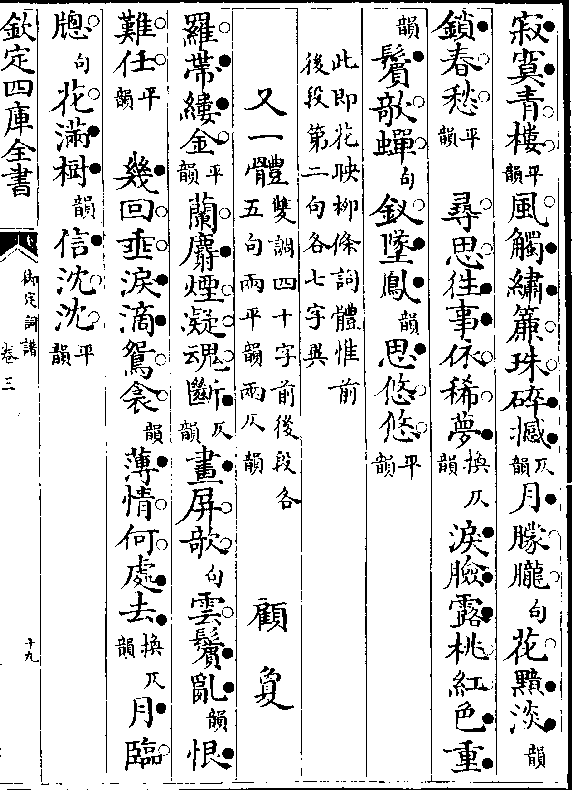 寂寞青樓平韻風觸繡簾珠碎撼仄韻月朦朧句花黯淡韻
鎖春愁平韻　尋思往事依稀夢換仄韻淚臉露桃紅色重
韻鬢欹蟬句釵墜鳳韻思悠悠平韻
此即花映柳條詞體惟前
後段第二句各七字異
又一體雙調四十字前後段各
五句兩平韻兩仄韻　顧敻
羅帶縷金平韻蘭麝煙凝魂斷仄韻畫屏欹句雲鬢亂韻恨
難任平韻　幾回垂淚滴鴛衾韻薄情何處去換仄韻月臨
牕句花滿樹韻信沈沈平韻
欽定四庫全書
御定詞譜
卷三
十九